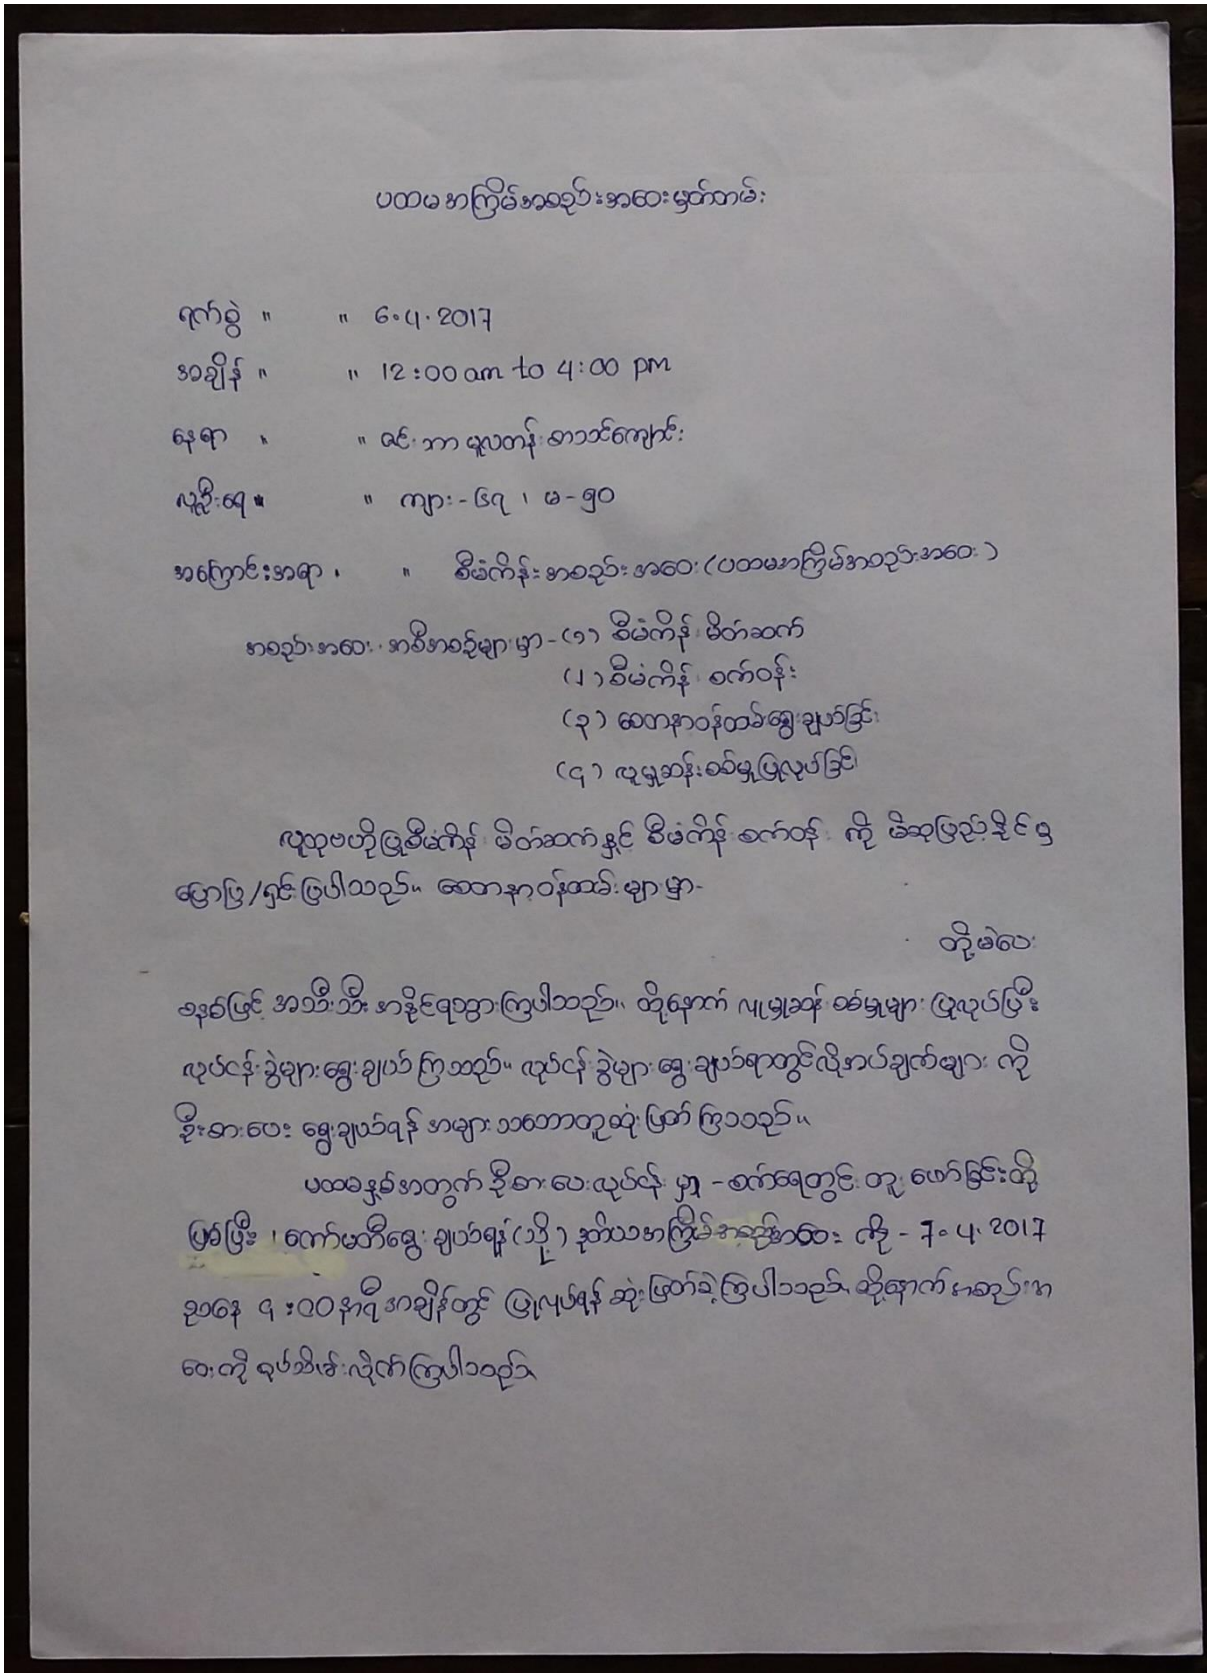 ပထမအကြိမ်အစည်းအဝေးမှတ်တမ်း
ရက်စွဲ " " 6.4.2017
အချိန် " " 12:00 am to 4:00 pm
နေရာ " " ဇင်းဘာ မူလတန်းစာသင်ကျောင်း
လူဦးရေ " " ကျား - ၆၇ ၊ မ - ၅၀
အကြောင်းအရာ " " စီမံကိန်းအစည်းအဝေး (ပထမအကြိမ်အစည်းအဝေး)
အစည်းအဝေး အစီအစဉ်များမှာ - (၁) စီမံကိန်းမိတ်ဆက်
(၂) စီမံကိန်းစက်ဝန်း
(၃) စေတနာ့ဝန်ထမ်းရွေးချယ်ခြင်း
(၄) လူမှုဆန်းစစ်မှုပြုလုပ်ခြင်း
လူထုဗဟိုပြုစီမံကိန်း မိတ်ဆက်နှင့် စီမံကိန်းစက်ဝန်း ကို
ပြောပြ/ရှင်းပြပါသည်။ စေတနာ့ဝန်ထမ်းများမှာ -
တို့မဲပေး
စနစ်ဖြင့် အသီးသီး အနိုင်ရသွားကြပါသည်။ ထို့နောက် လူမှုဆန်းစစ်မှုများ ပြုလုပ်ပြီး
လုပ်ငန်းခွဲများရွေးချယ်ကြသည်။ လုပ်ငန်းခွဲများရွေးချယ်ရာတွင်လိုအပ်ချက်များကို
ဦးစားပေး ရွေးချယ်ရန် အများသဘောတူဆုံးဖြတ်ကြသည်။
ပထမနှစ်အတွက် ဦးစားပေးလုပ်ငန်းမှာ - စက်ရေတွင်းတူးဖော်ခြင်းတို့
ဖြစ်ပြီး ၊ ကော်မတီရွေးချယ်ရန် (သို့) ဒုတိယအကြိမ်အစည်းအဝေး ကို - 7.4.2017
ညနေ ၄:၀၀ နာရီအချိန်တွင် ပြုလုပ်ရန် ဆုံးဖြတ်ခဲ့ကြပါသည်။ ထို့နောက် အစည်းအ
ဝေးကို ရုပ်သိမ်းလိုက်ကြပါသည်။